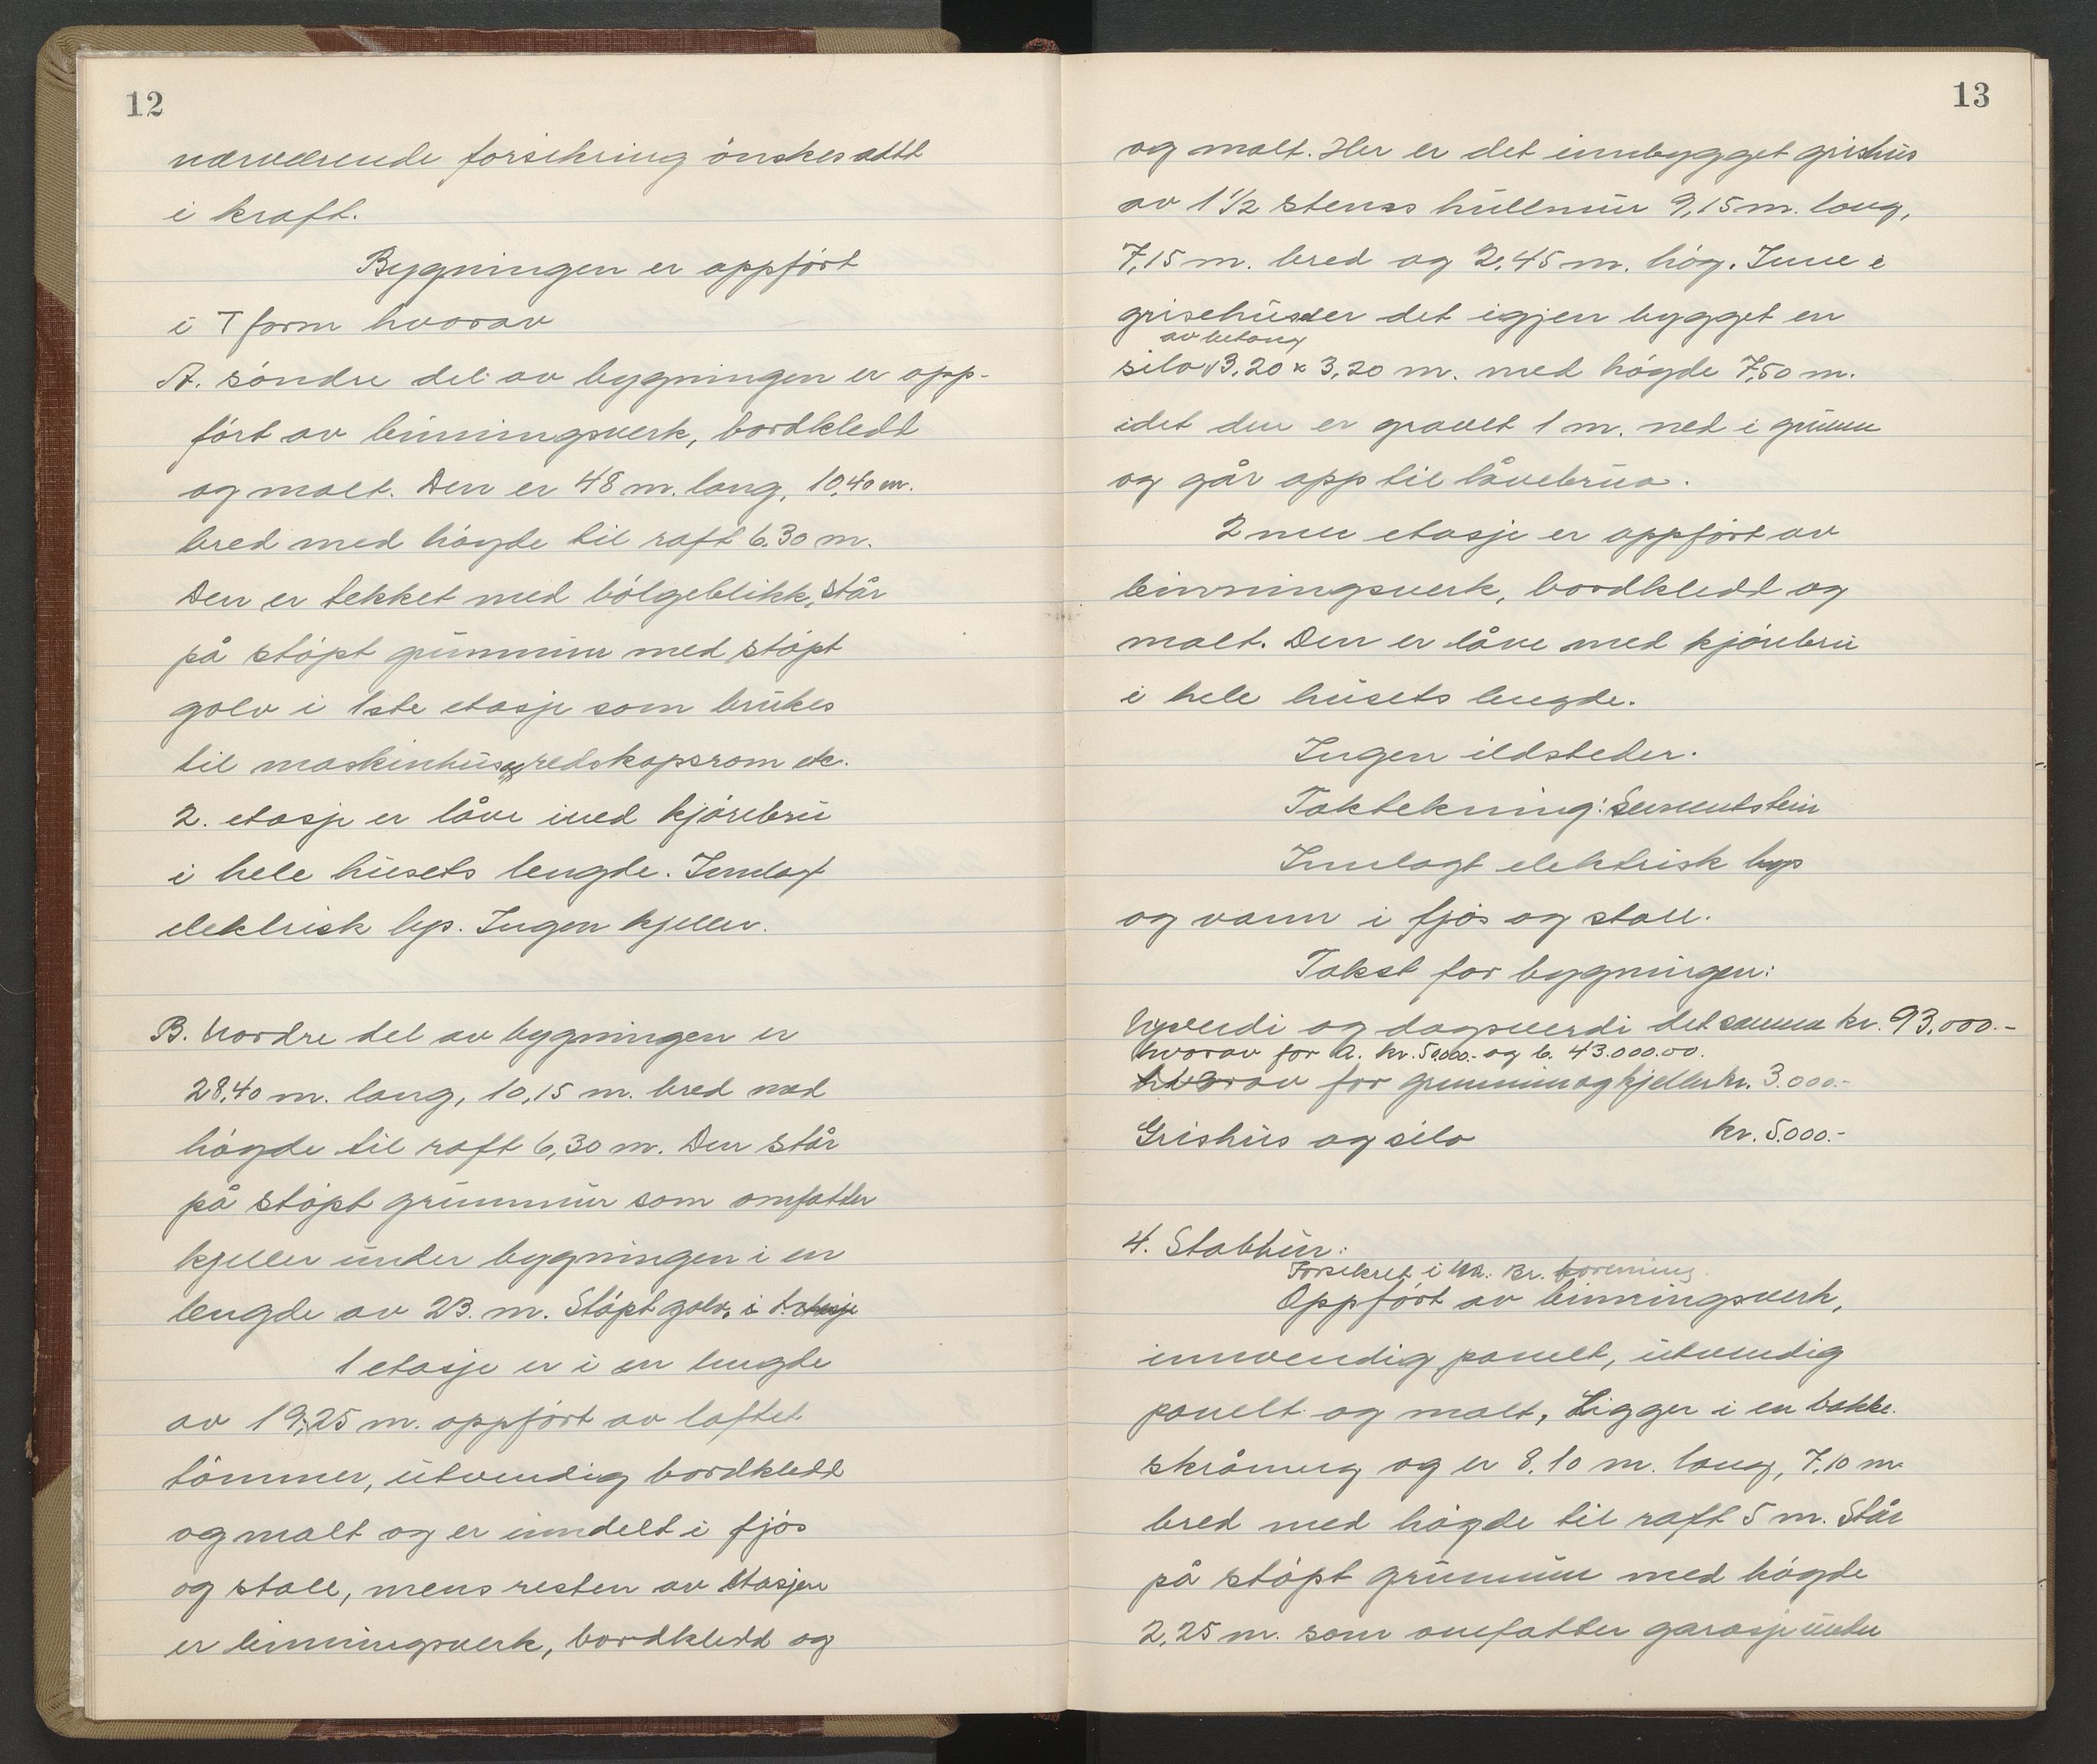 12
nærværende forsikring ønskes sattt
i kraft.
Bygningen er oppført
i T form hvorav
A. søndre del av bygningen er opp-
ført av binningsverk, bordkledd
og malt. Den er 48 m. lang, 10,40 m.
bred med høgde til raft 6.30 m.
Den er tekket med bølgeblikk, står
på støpt grunnmur med støpt
golv i 1ste etasje som brukes
til maskinhus og redskapsrom etc.
2. etasje er låve med kjørebru
i hele husets lengde. Innlagt
elektrisk lys. Ingen kjeller.
B. Nordre del av bygningen er
28,40 m. lang, 10,15 m. bred med
høgde til raft 6,30 m. Den står
på støpt grunnmur som omfatter
kjeller under bygningen i en
lengde av 23. m. Støpt golv. i 1. etasje
1 etasje er i en lengde
av 19,25 m. oppført av laftet
tømmer, utvendig bordkledd
og malt og er inndelt i fjøs
og stall, mens resten av etasjen
er binningsverk, bordkledd og
13
og malt. Her er det innbygget grishus
av 1 1/2 stens hullmur 9,15 m. lang,
7,15 m. bred og 2,45 m. høg. Inne i
grisehuset er det igjen bygget en
av betong
silo 3,20 x 3,20 m. med høgde 7,50 m.
idet den er gravet 1 m. ned i grunnen
og går opp til låvebrua.
2nen etasje er oppført av
binningsverk, bordkledd og
malt. Den er låve med kjørebru
i hele husets lengde.
Ingen ildsteder.
Taktekning: Sementstein
Innlagt elektrisk lys
og vann i fjøs og stall.
Takst for bygningen:
Nyverdi og dagsverdi det samme kr. 93.000.-
hvorav for A. kr. 50.000.- og b. 43.000.00.
hvorav for grunnmur og kjeller kr. 3.000.-
Grishus og silo kr. 5.000.-
4. Stabbur:
Forsikret i Nr. Br. forening
Oppført av binningsverk,
innvendig panelt, utvendig
panelt og malt, Ligger i en bakke-
skråning og er 8,10 m. lang, 7,10 m
bred med høgde til raft 5 m. Står
på støpt grunnmur med høgde
2,25 m. som omfatter garasje under